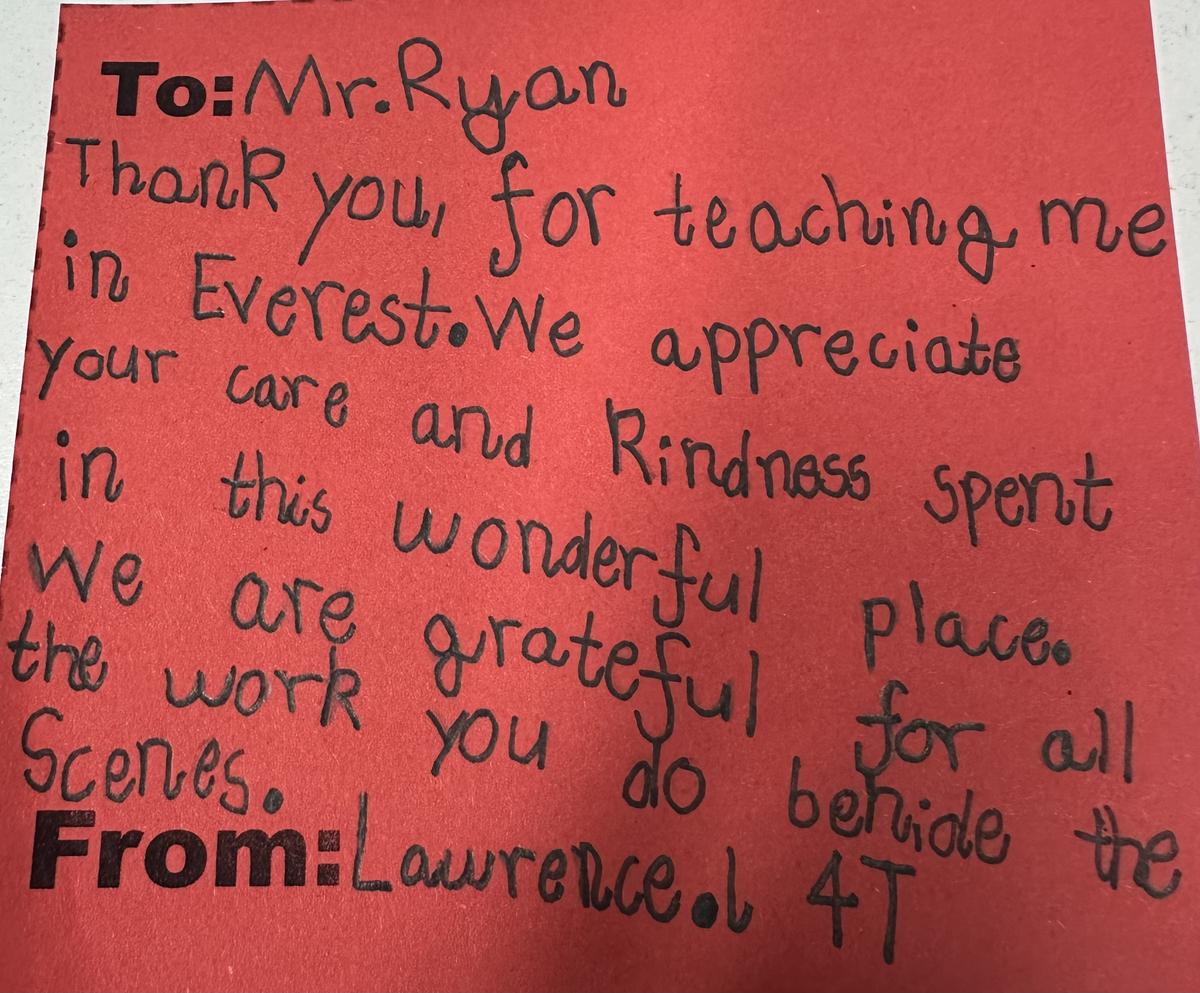 To: Mr. Ryan
Thank you, for teaching me
in Everest. We appreciate
your care and kindness spent
in this wonderful place.
We are grateful for all
the work you do behide the
Scenes.
From: Lawrence.l 4T